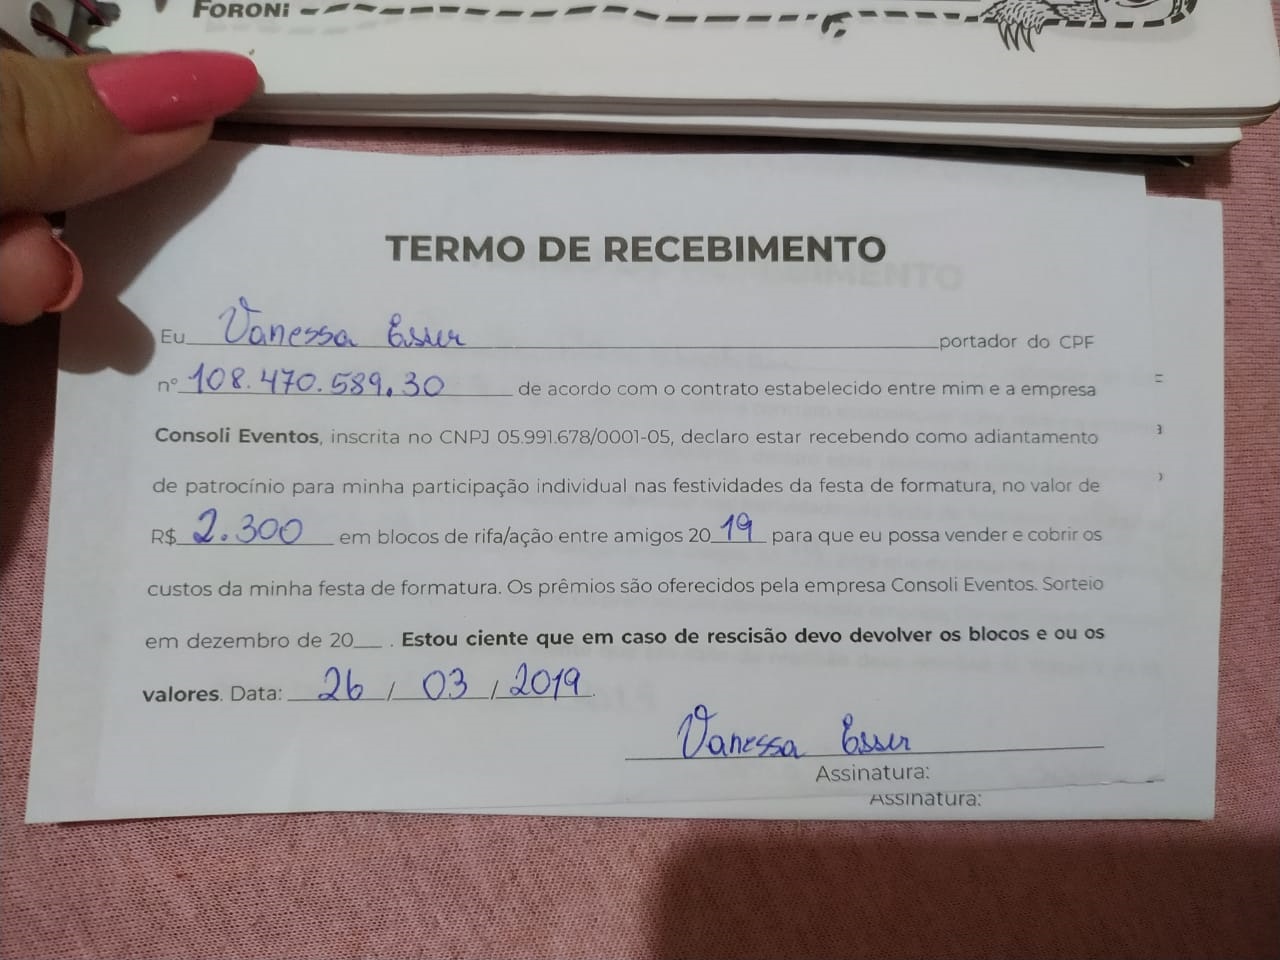 FORONI
TERMO DE RECEBIMENTO
Eu Vanessa Esser portador do CPF
nº 108.470.589.30 de acordo com o contrato estabelecido entre mim e a empresa
Consoli Eventos, inscrita no CNPJ 05.991.678/0001-05, declaro estar recebendo como adiantamento
de patrocínio para minha participação individual nas festividades da festa de formatura, no valor de
R$ 2.300 em blocos de rifa/ação entre amigos 2019 para que eu possa vender e cobrir os
custos da minha festa de formatura. Os prêmios são oferecidos pela empresa Consoli Eventos. Sorteio
em dezembro de 20___ . Estou ciente que em caso de rescisão devo devolver os blocos e ou os
valores. Data: 26 / 03 / 2019.
Vanessa Esser
Assinatura:
Assinatura: